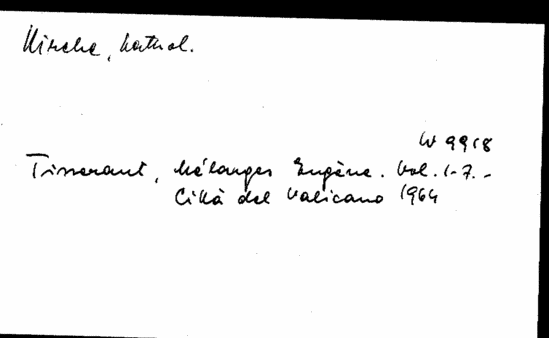 Kirche, kathol.
W 9918
Tisserant, Mélanges Eugène. Vol. 1-7. -
Città del Vaticano 1964